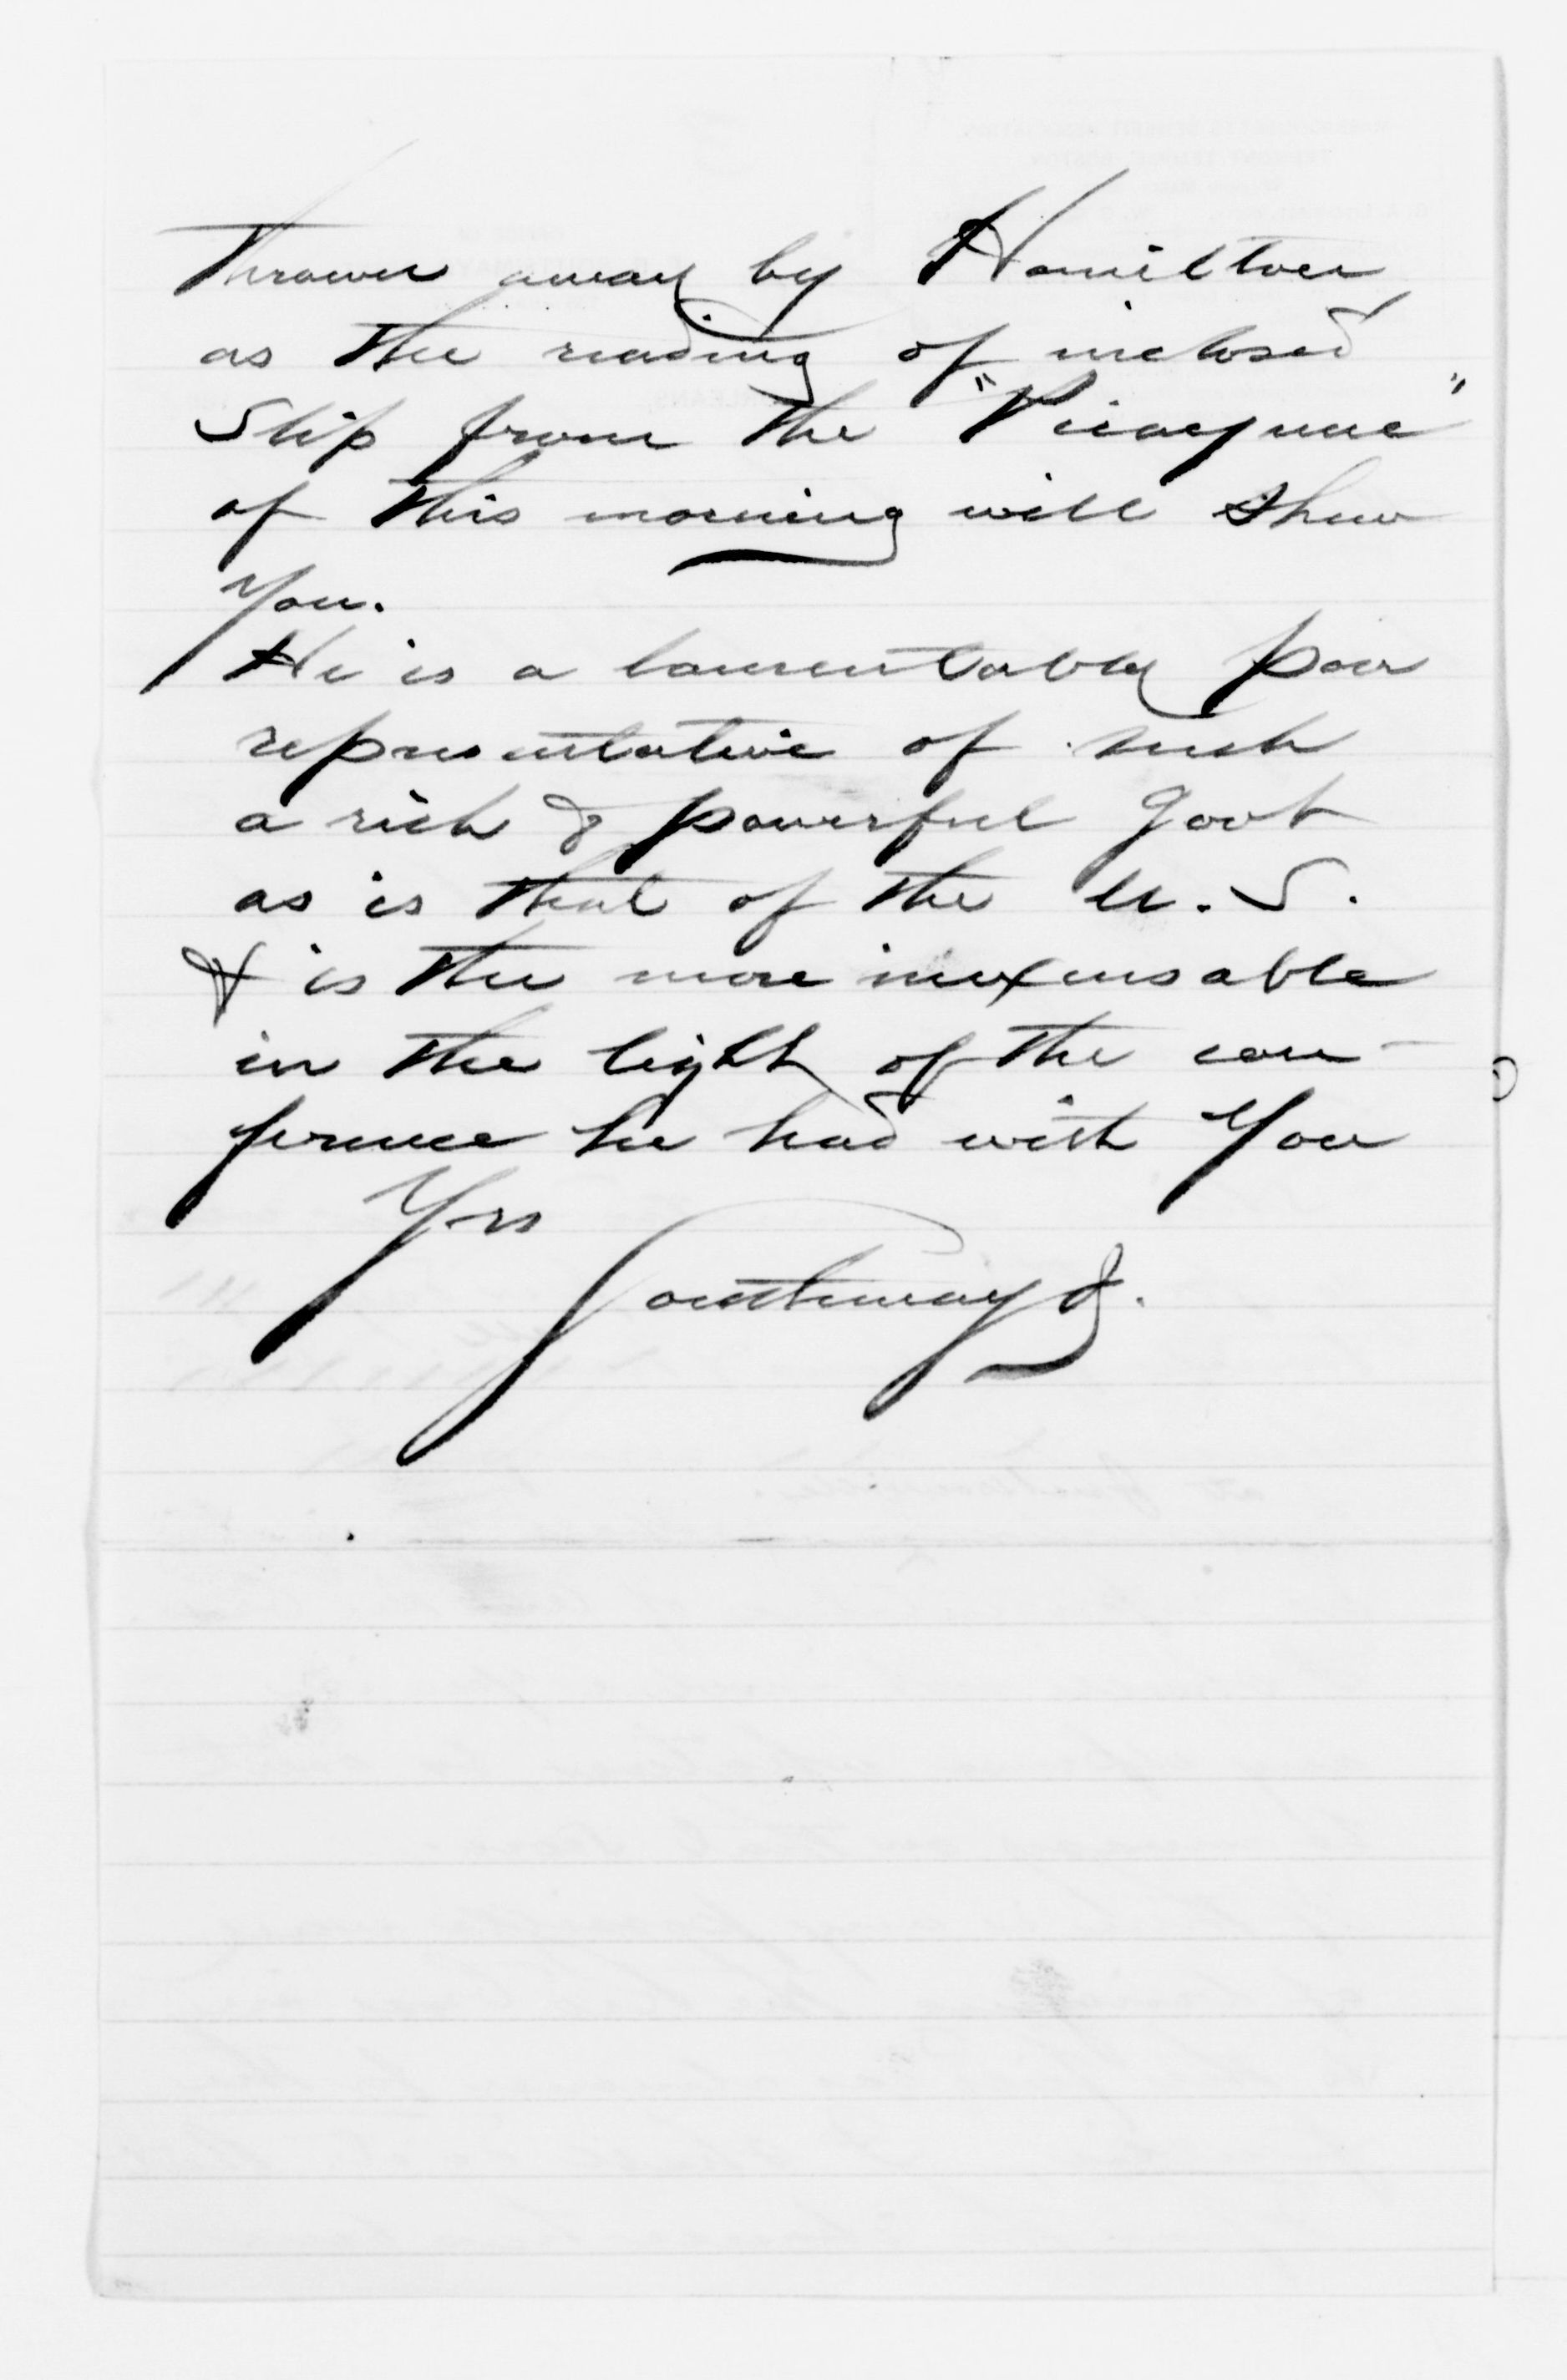 thrown away by Hamilton,
as the reading of inclosed
slip from the "Picayune"
of this morning will show
you.
He is a lamentably poor
representative of such
a rich & powerful Govt
as is that of the U.S.
& is the more inexcusable
in the light of the con-
ference he had with you
Yrs
Southmayd.